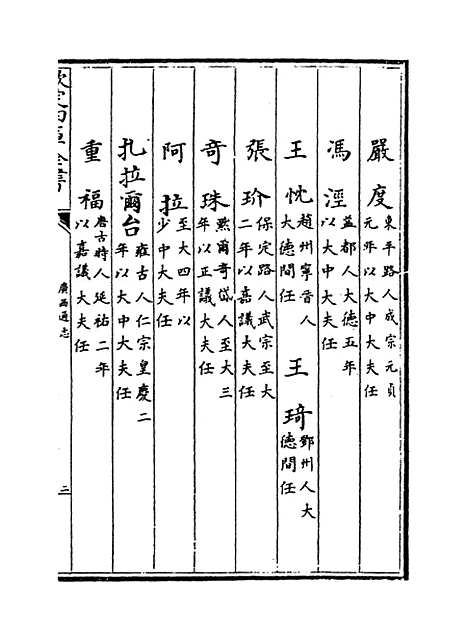 嚴度 東平路人成宗元貞
元年以大中大夫任
馮涇 益都人大德五年
以大中大夫任
王忱 趙州寧晉人
大德間任
王琦 鄧州人大
德間任
張玠 保定路人武宗至大
二年以嘉議大夫任
奇珠 默爾奇岱人至大三
年以正議大夫任
阿拉 至大四年以
少中大夫任
扎拉爾台 雍古人仁宗皇慶二
年以大中大夫任
重福 唐古特人延祐二年
以嘉議大夫任
欽定四庫全書
廣西通志
三